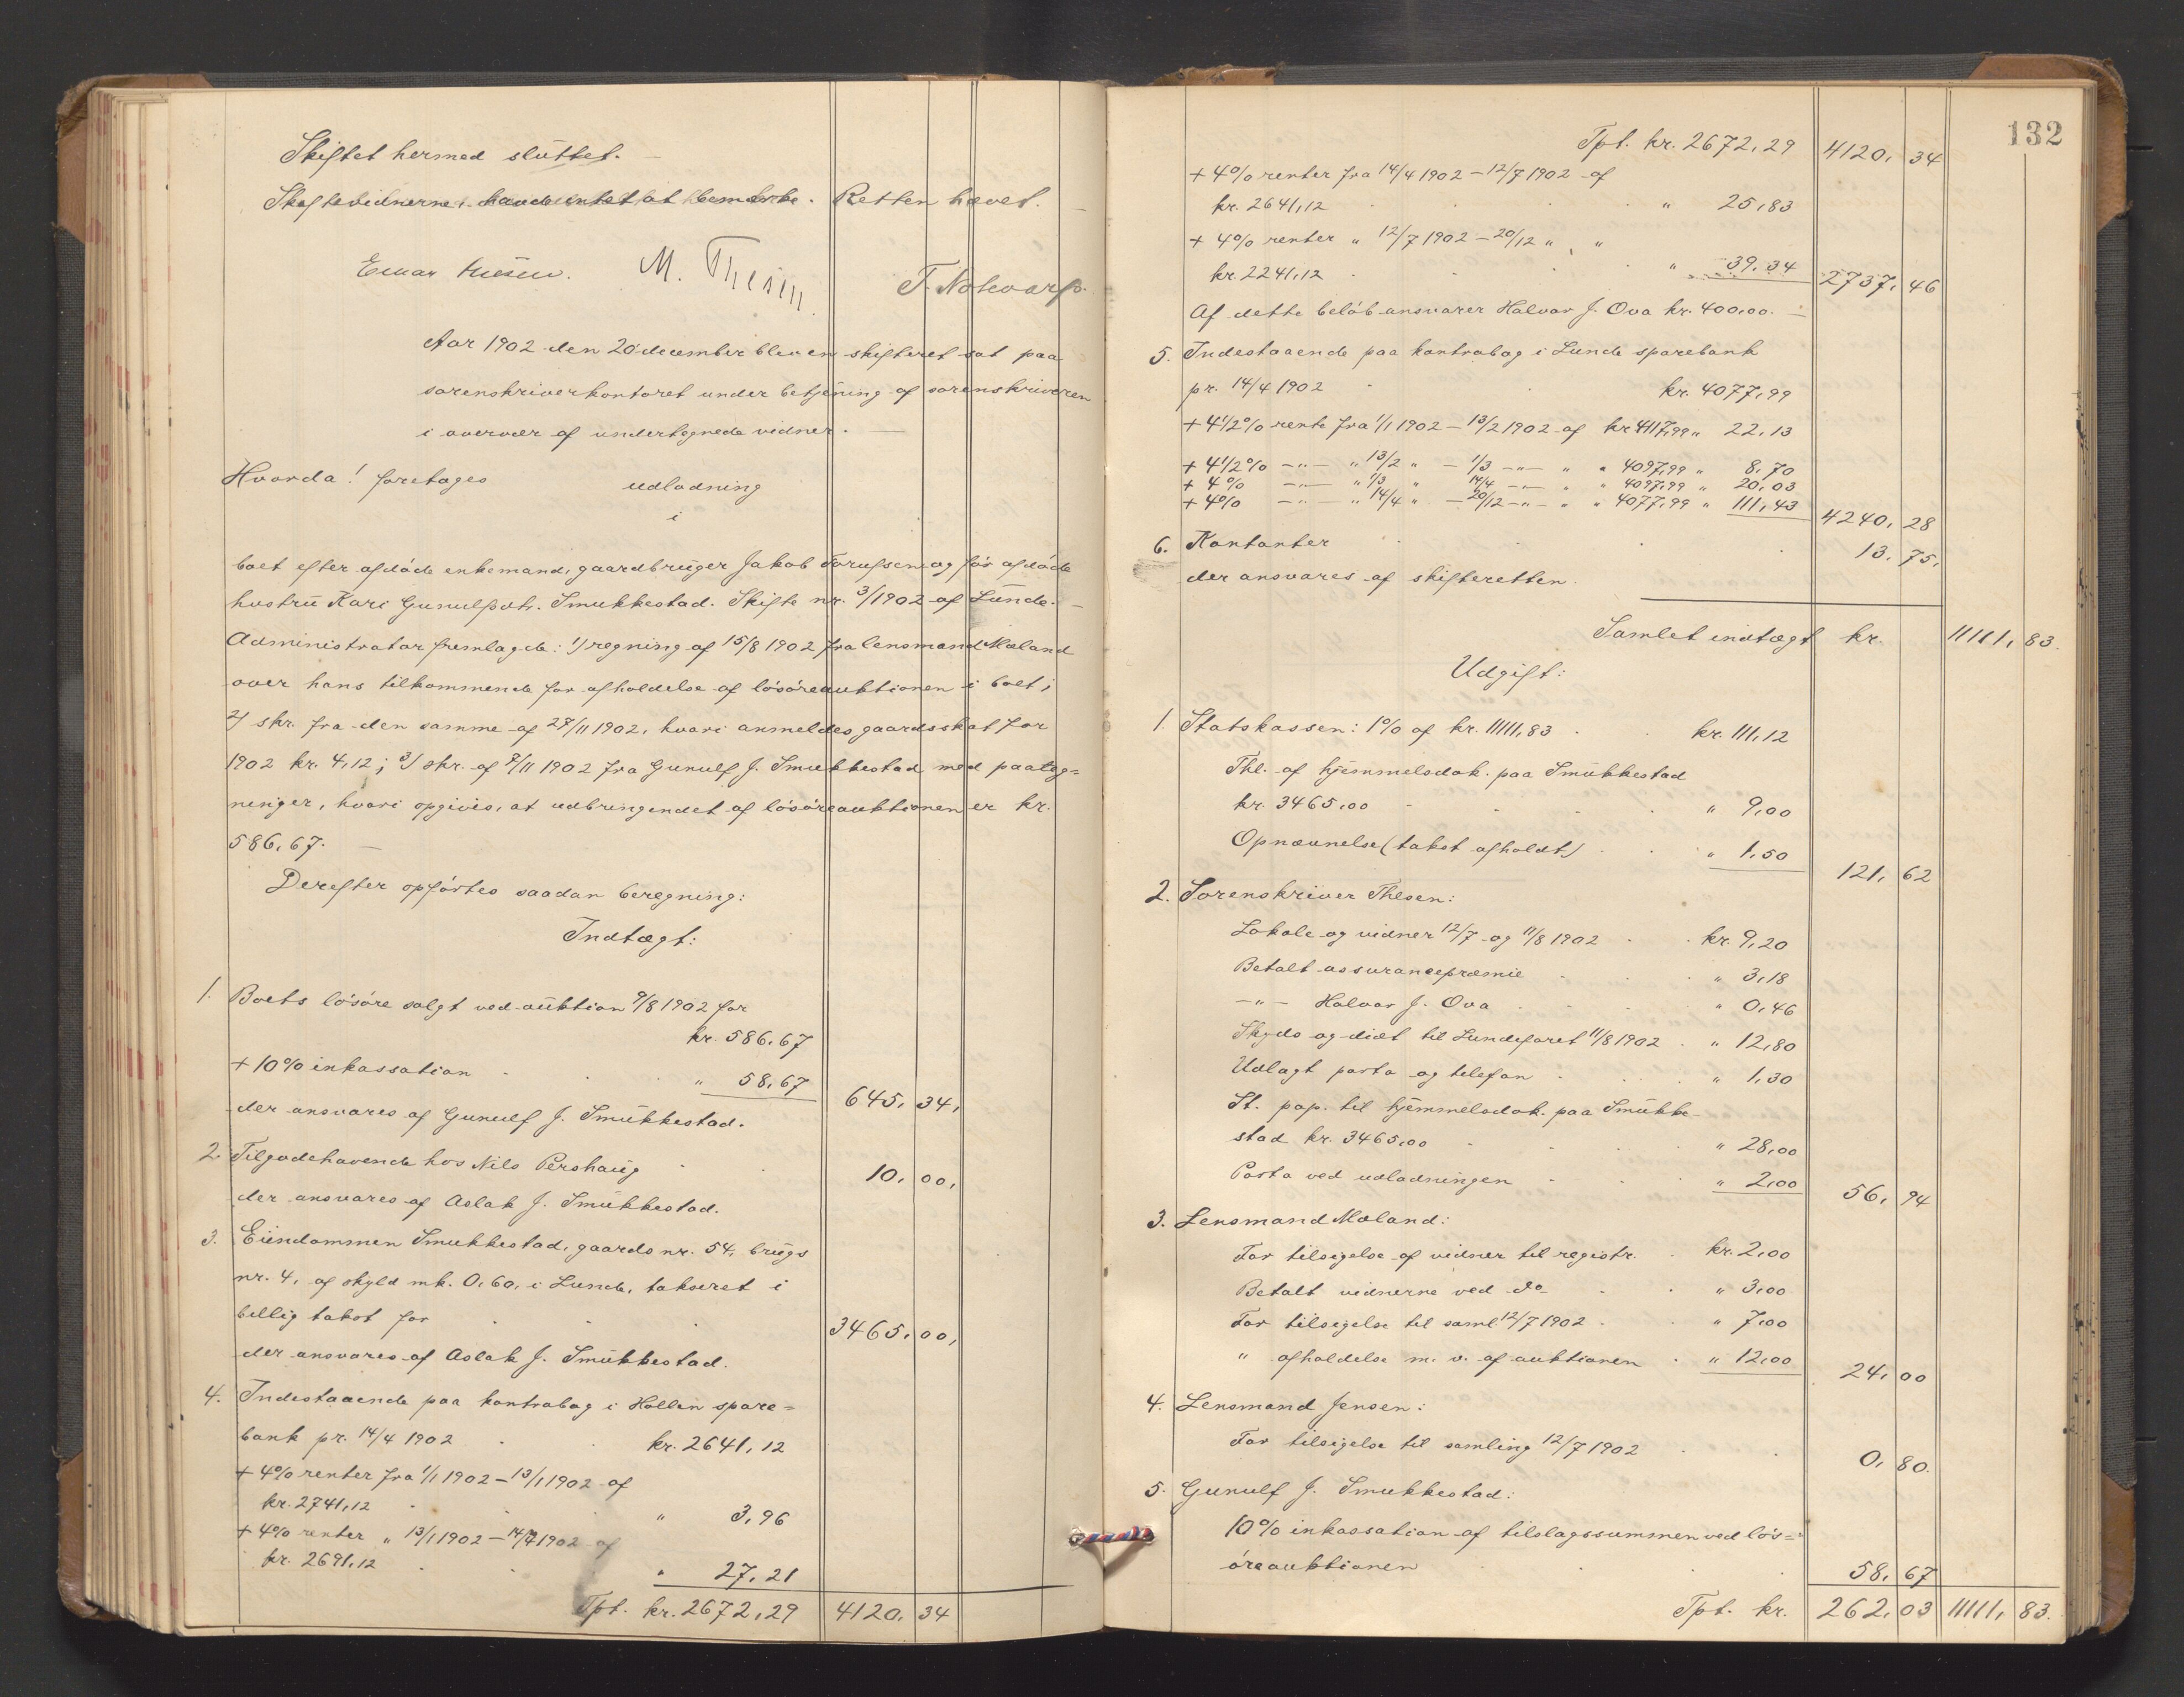 Skiftet hermed sluttet. —
Skiftevidnerne havde intet at bemærke. Retten hævet. —
M. Thesen
T. Notevarp.
Aar 1902 den 20 december blev en skifteret sat paa
sorenskriverkontoret under betjening af sorenskriveren
i overvær af undertegnede vidner. —
Hvorda! foretages udlodning
i
boet efter afdøde enkemand, gaardbruger Jakob Torufsen og før afdøde
hustru Kari Gunulfsdtr. Smukkestad. Skifte nr. 3/1902 af Lunde. —
Administrator fremlagde: 1) regning af 15/8 1902 fra lensmand Mæland
over hans tilkommende for afholdelse af løsøreauktionen i boet;
2) skr. fra den samme af 27/11 1902, hvori anmeldes gaardsskat for
1902 kr. 4,12; 3) skr. af 7/11 1902 fra Gunulf J. Smukkestad med paateg=
ninger, hvori opgives, at udbringendet af løsøreauktionen er kr.
586,67. —
Derefter opførtes saadan beregning:
Indtægt:
1. Boets løsøre solgt ved auktion 9/8 1902 for
kr. 586,67
+ 10% inkassation " 58,67 645, 34,
der ansvares af Gunulf J. Smukkestad.
2. Tilgodehavende hos Nils Pershaug 10, 00,
der ansvares af Aslak J. Smukkestad.
3. Eiendommen Smukkestad, gaards nr. 54, brugs
nr. 4, af skyld mk. 0,60, i Lunde, takseret i
billig takst for 3465, 00,
der ansvares af Aslak J. Smukkestad.
4. Indestaaende paa kontrabog i Hollen spare=
bank pr. 14/4 1902 kr. 2641,12
+ 4% renter fra 1/1 1902 – 13/1 1902 af
kr. 2741,12 " 3,96
+ 4% renter " 13/1 1902 – 14/4 1902 af
kr. 2691,12 " 27,21
Tpt. kr. 2672,29 4120, 34
132
Tpt. kr. 2672,29 4120, 34
+ 4% renter fra 14/4 1902 – 12/7 1902 af
kr. 2641,12 " 25,83
+ 4% renter " 12/7 1902 – 20/12 " "
kr. 2241,12 " 39,34 2737, 46
Af dette beløb ansvarer Halvor J. Ova kr. 400,00. —
5. Indestaaende paa kontrabog i Lunde sparebank
pr. 14/4 1902 kr. 4077,99
+ 4 1/2% rente fra 1/1 1902 – 13/2 1902 af kr 4117,99 " 22,13
+ 4 1/2% –"– " 13/2 " – 1/3 –"– " " 4097,99 " 8,70
+ 4% –"– " 1/3 " 14/4 –"– " " 4097,99 " 20,03
+ 4% –"– " 14/4 " – 20/12 –"– " " 4077,99 " 111,43 4240, 28
6. Kontanter 13, 75,
der ansvares af skifteretten.
Samlet indtægt kr. 11111, 83.
Udgift:
1. Statskassen: 1% af kr. 11111,83 kr. 111,12
Thl. af hjemmelsdok. paa Smukkestad
kr. 3465,00 " 9,00
Opnævnelse (takst afholdt) " 1,50 121, 62
2. Sorenskriver Thesen:
Lokale og vidner 12/7 og 11/8 1902 kr. 9,20
Betalt assurancepræmie " 3,18
–"– Halvor J. Ova " 0,46
Skyds og diæt til Lundefaret 11/8 1902 " 12,80
Udlagt porto og telefon " 1,30
St. pap. til hjemmelsdok. paa Smukke-
stad kr. 3465,00 " 28,00
Porto ved udlodningen " 2,00 56, 94
3. Lensmand Mæland:
For tilsigelse af vidner til registr. kr. 2,00
Betalt vidnerne ved do " 3,00
For tilsigelse til saml. 12/7 1902 " 7,00
" afholdelse m. v. af auktionen " 12,00 24, 00
4. Lensmand Jensen:
For tilsigelse til samling 12/7 1902 0, 80.
5. Gunulf J. Smukkestad:
10% inkassation af tilslagssummen ved løs=
øreauktionen 58, 67
Tpt. kr. 262, 03 11111, 83.